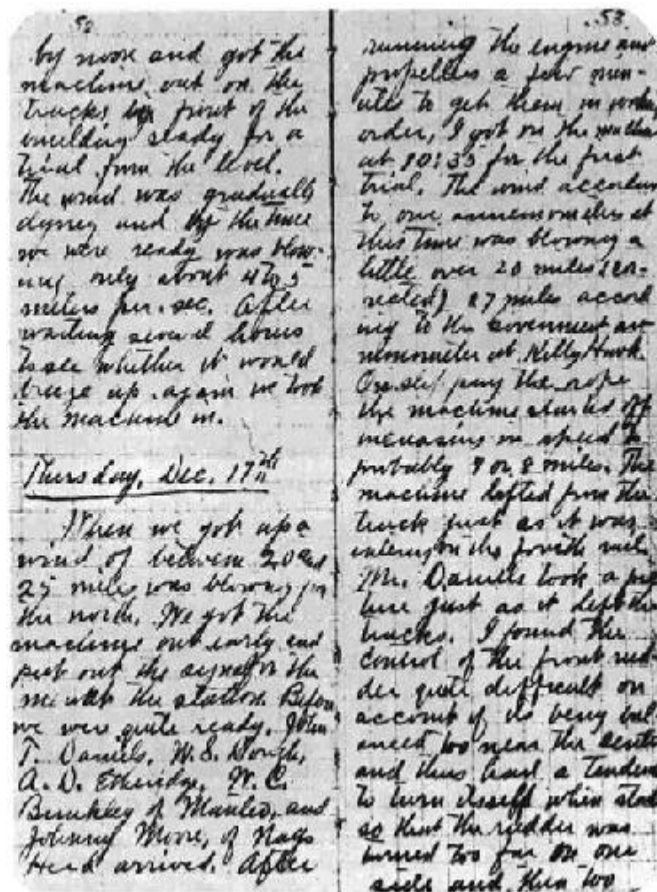 52
by noon and got the
machine out on the
tracks in front of the
building ready for a
trial from the level.
The wind was gradually
dying and by the time
we were ready was blow-
ing only about 4 to 5
meters per. sec. After
waiting several hours
to see whether it would
breeze up again we took
the machine in.
Thursday, Dec. 17th
When we got up a
wind of between 20 and
25 miles was blowing
the north. We got the
machine out early and
put out the signal for the
men at the station. Before
we were quite ready, John
T. Daniels, W. S. Dough,
A. D. Etheridge, W. C.
Brinkley of Manteo, and
Johnny Moore, of Nags
Head arrived. After
53
running the engine and
propellers a few min-
utes to get them in working
order, I got on the machine
at 10:35 for the first
trial. The wind
to our anemometers at
this time was blowing a
little over 20 miles
27 miles accord
ing to the Government
at Kitty Hawk.
On the rope
the machine started off
increasing in speed to
probably 7 or 8 miles. The
machine lifted from the
track just as it was
entering on the fourth
Mr. Daniels took a
ture just as it left the
tracks. I found the
control of the front rud-
der quite difficult on
account of its being bal-
anced too near the
and thus had a
to turn itself when
so that the rudder was
turned too far on one
side and then too